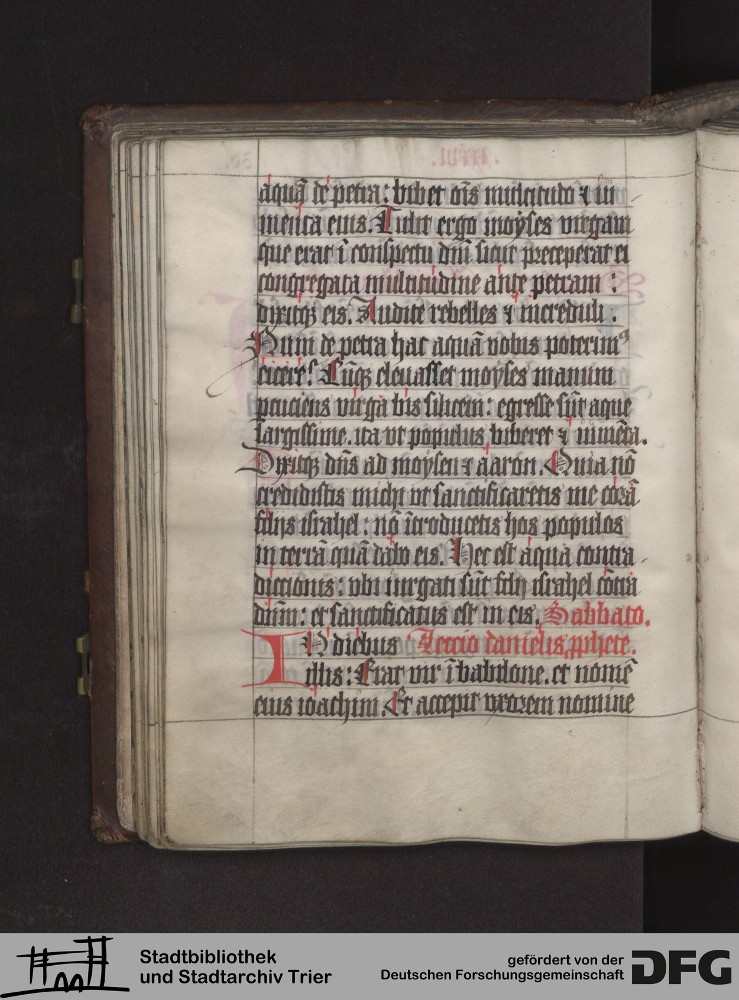 aquā de petra: bibet oīs multitudo ⁊ iu
menta eius. Tulit ergo moÿses virgam
que erat ī conspectu dnī sicut preceperat ei
congregata multitudine ante petram :
dixitqꝫ eis. Audite rebelles ⁊ increduli .
Num de petra hac aquā vobis poterimꝰ
eicere? Cūqꝫ eleuasset moÿses manum
percuciens virgā bis silicem: egresse sūt aque
largissime. ita vt populus biberet ⁊ iumēta.
Dixitqꝫ dn̄s ad moÿsen ⁊ aaron. Quia nō
credidistis michi vt sanctificaretis me corā
filijs israhel: nō ītroducetis hos populos
in terrā quā dabo eis. Hec est aqua contra
dictionis: vbi iurgati sūt filij israhel cōtra
dnm̄: et sanctificatus est in eis. Sabbato.
IN diebus Leccio danielis ꝓphete.
illis: Erat vir ī babilone. et nomē
eius ioachim. Et accepit vxorem nomine
Stadtbibliothek
und Stadtarchiv Trier
gefördert von der
Deutschen Forschungsgemeinschaft
DFG